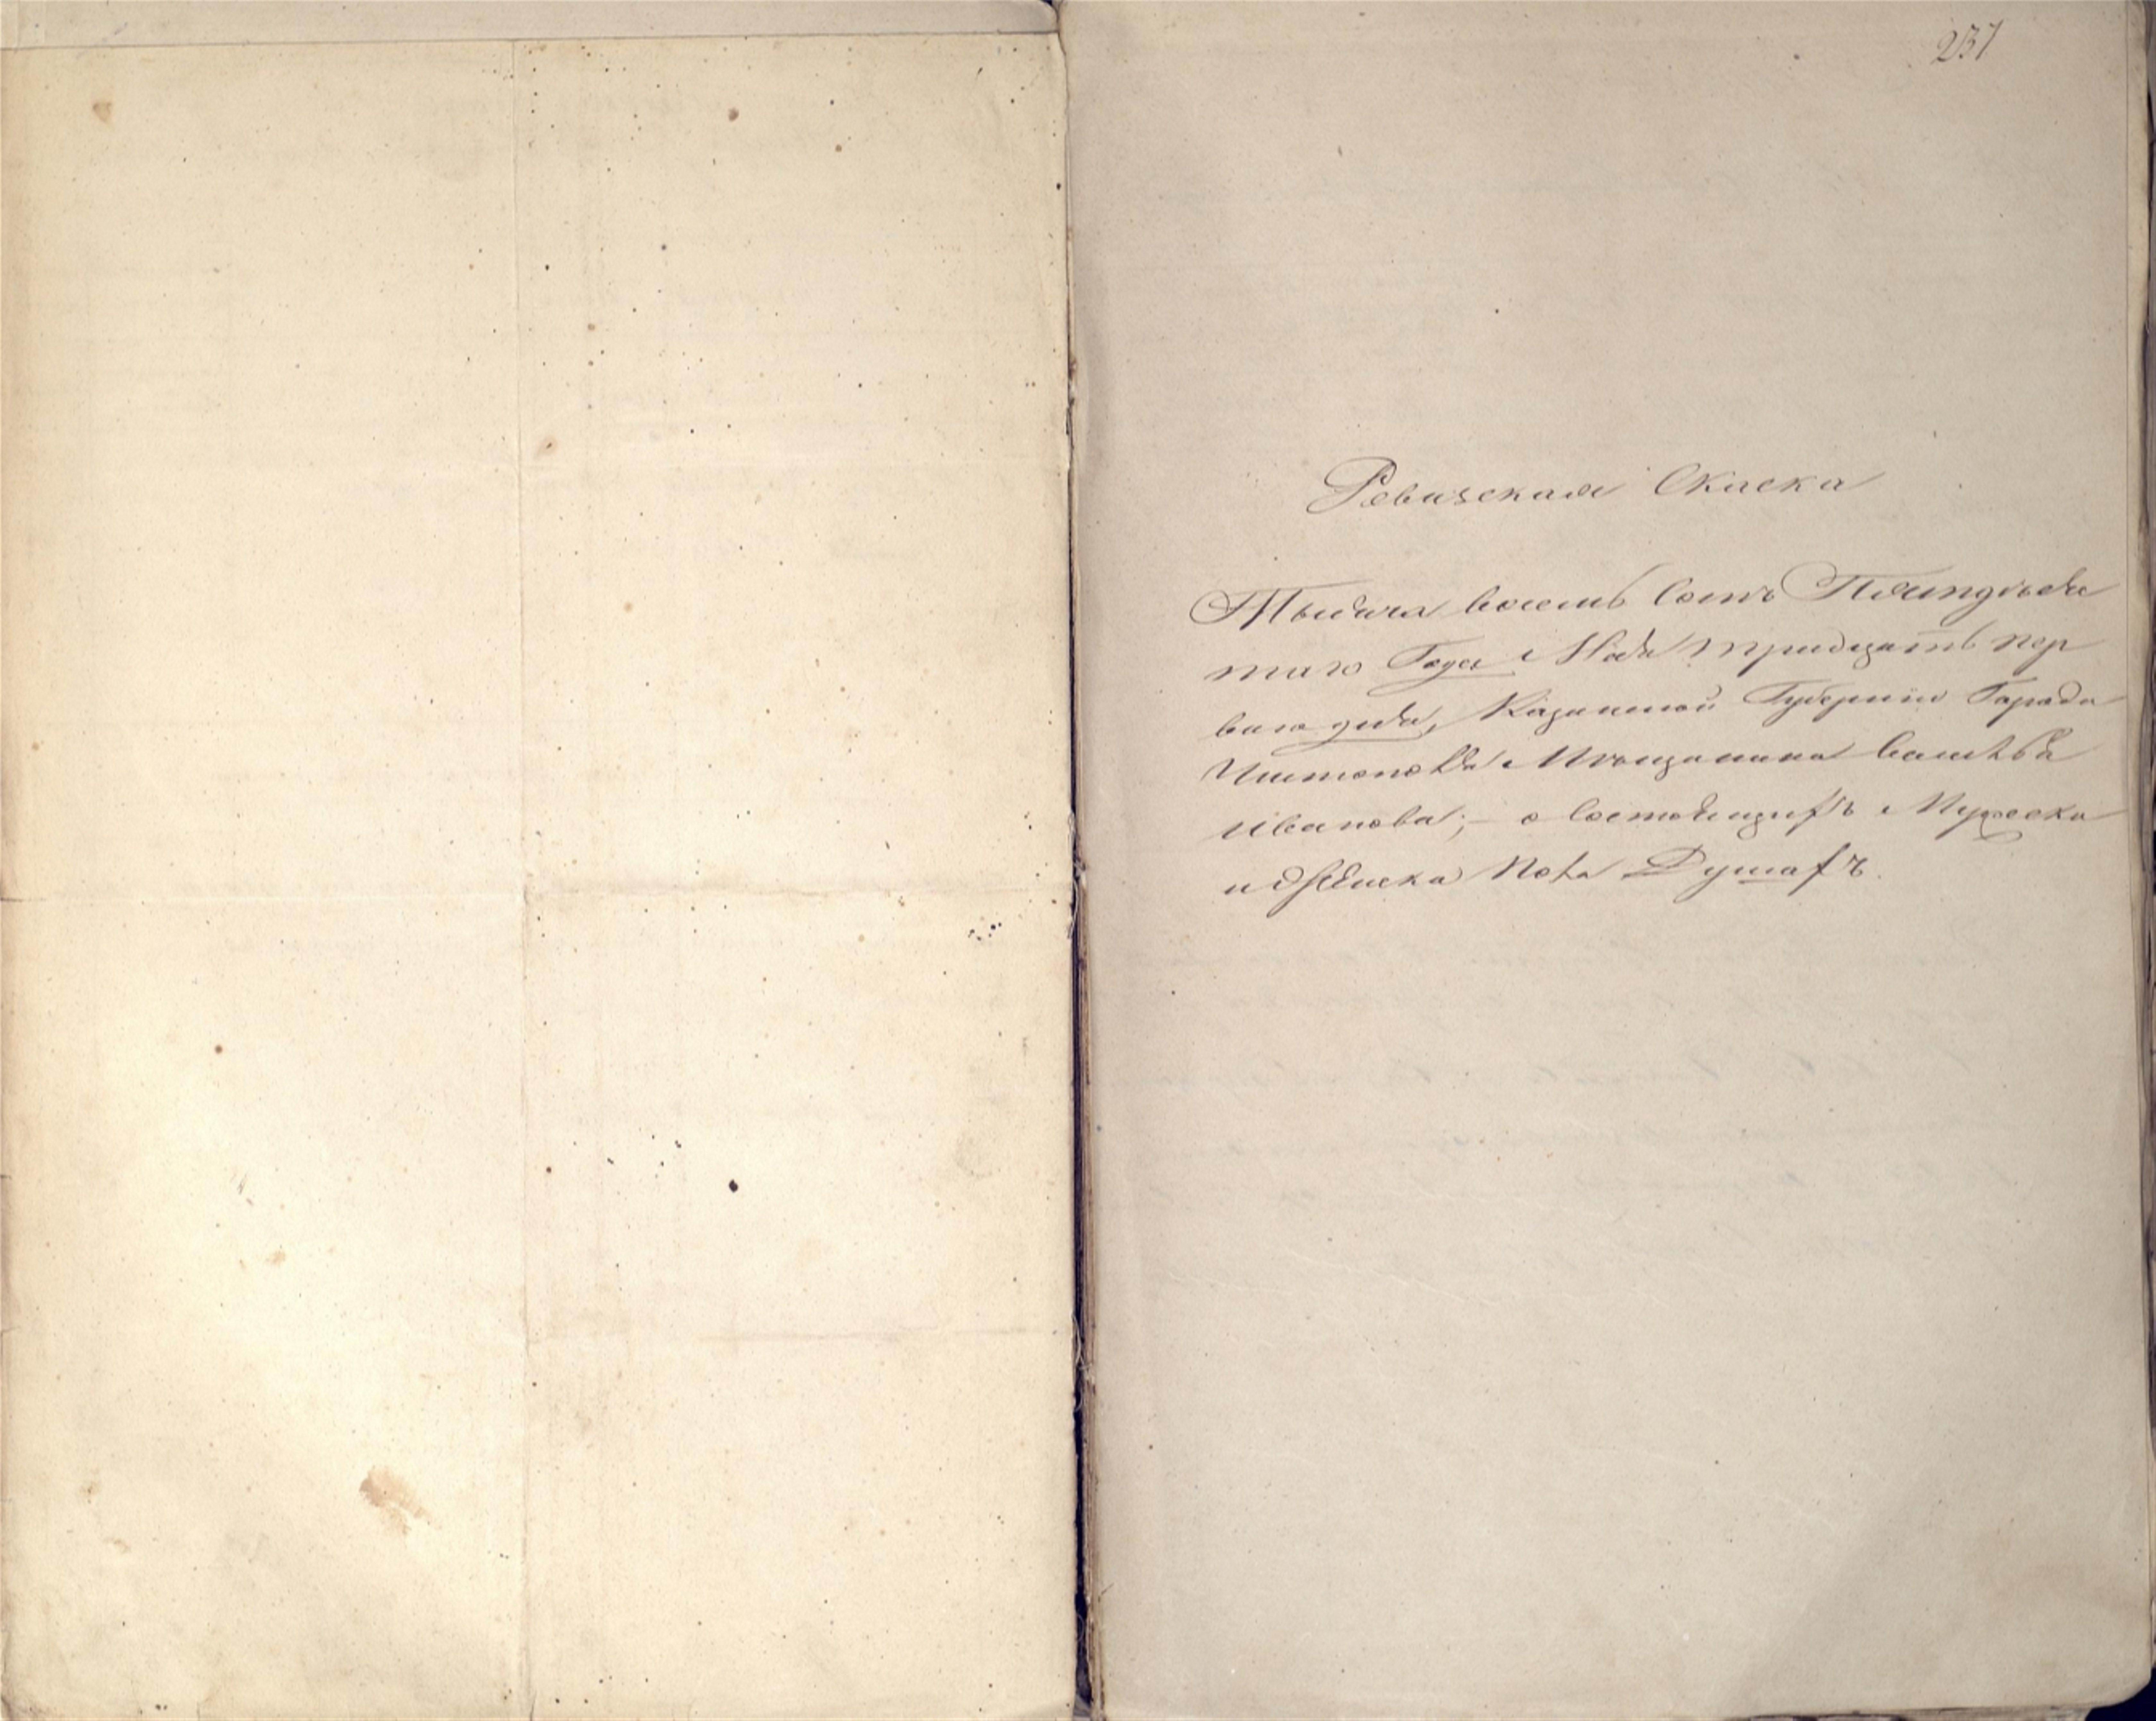 237
Ревизская Скаска
Тысяча восемь сотъ Пятидеся
таго Года Маія тридцать пер
ваго дня, Казанской Губернiи Города
Чистополя Мѣщанина Василья
Иванова; о состоящихъ Мужеска
и Женска пола Душахъ.